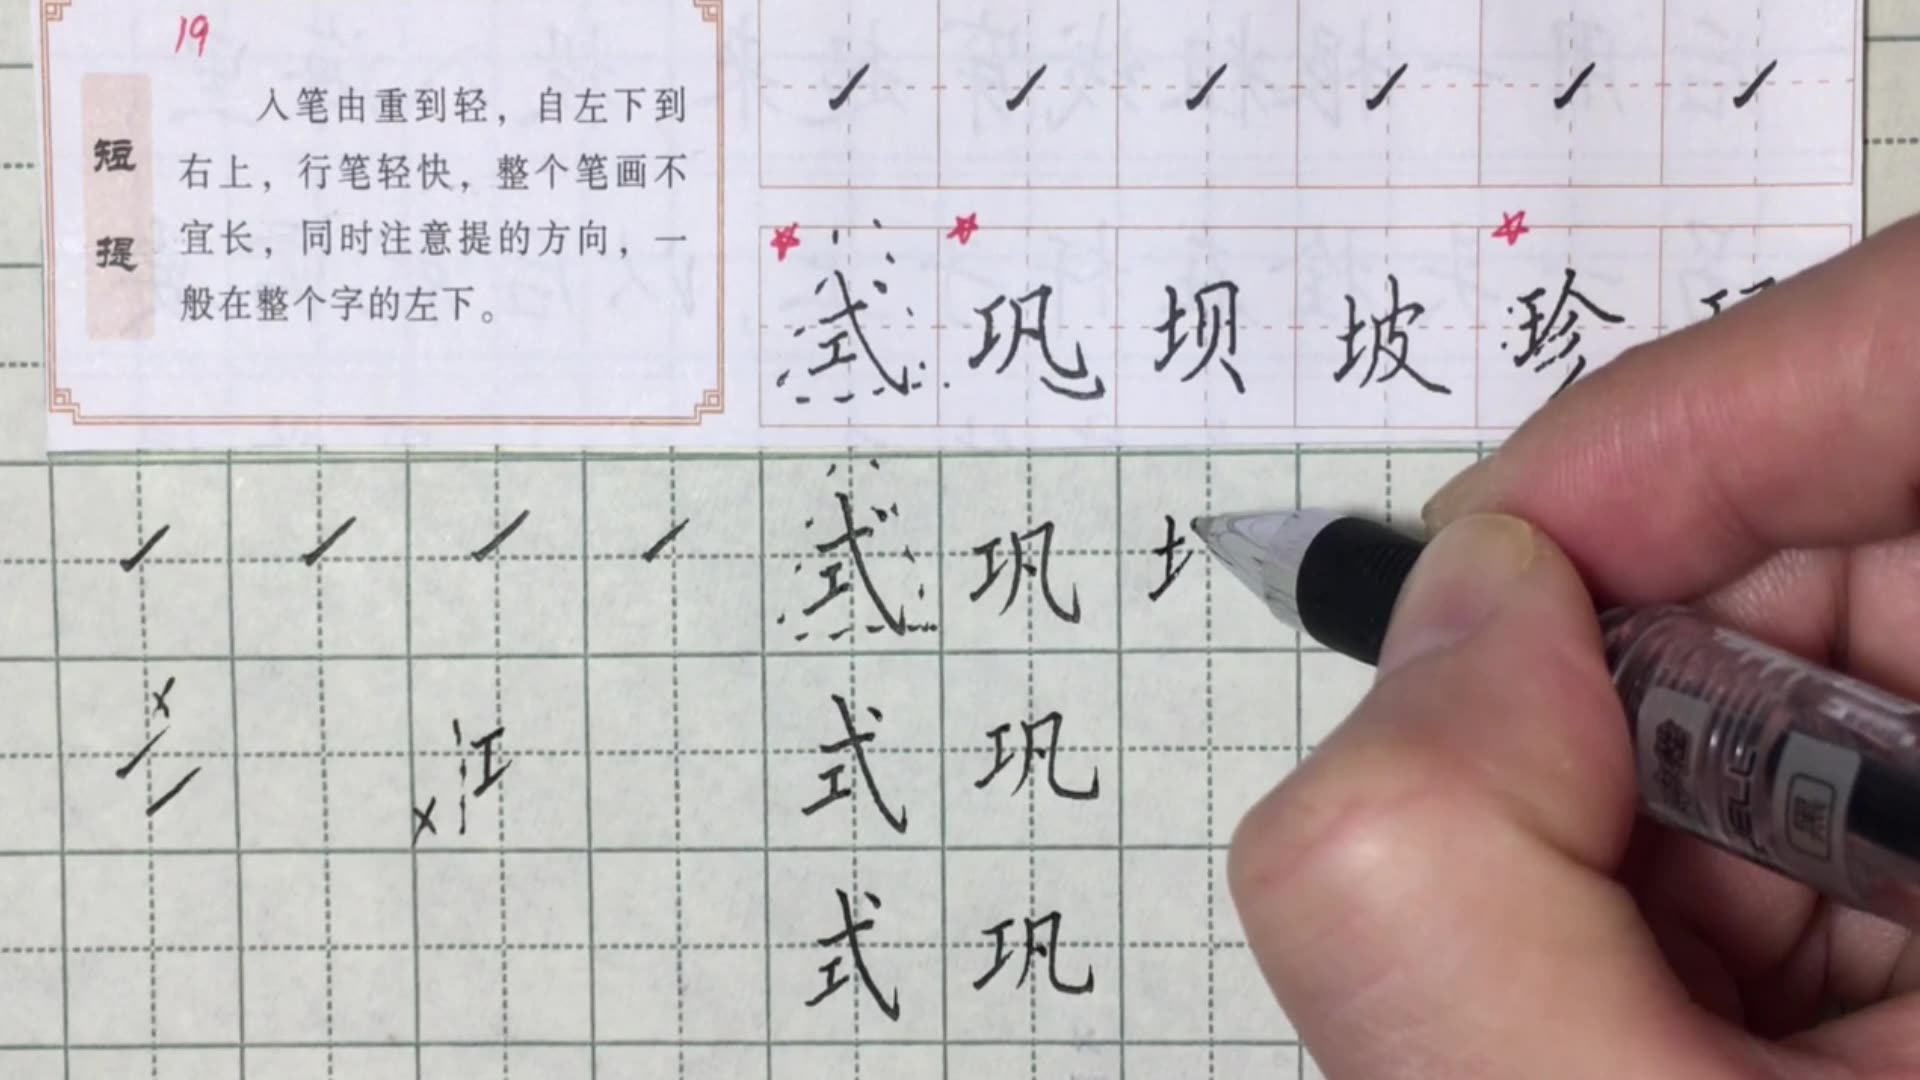 19
短提
入笔由重到轻，自左下到
右上，行笔轻快，整个笔画不
宜长，同时注意提的方向，一
般在整个字的左下。
式 巩 坝 坡 珍
式 巩
x 江 式 巩
x
式 巩
黑